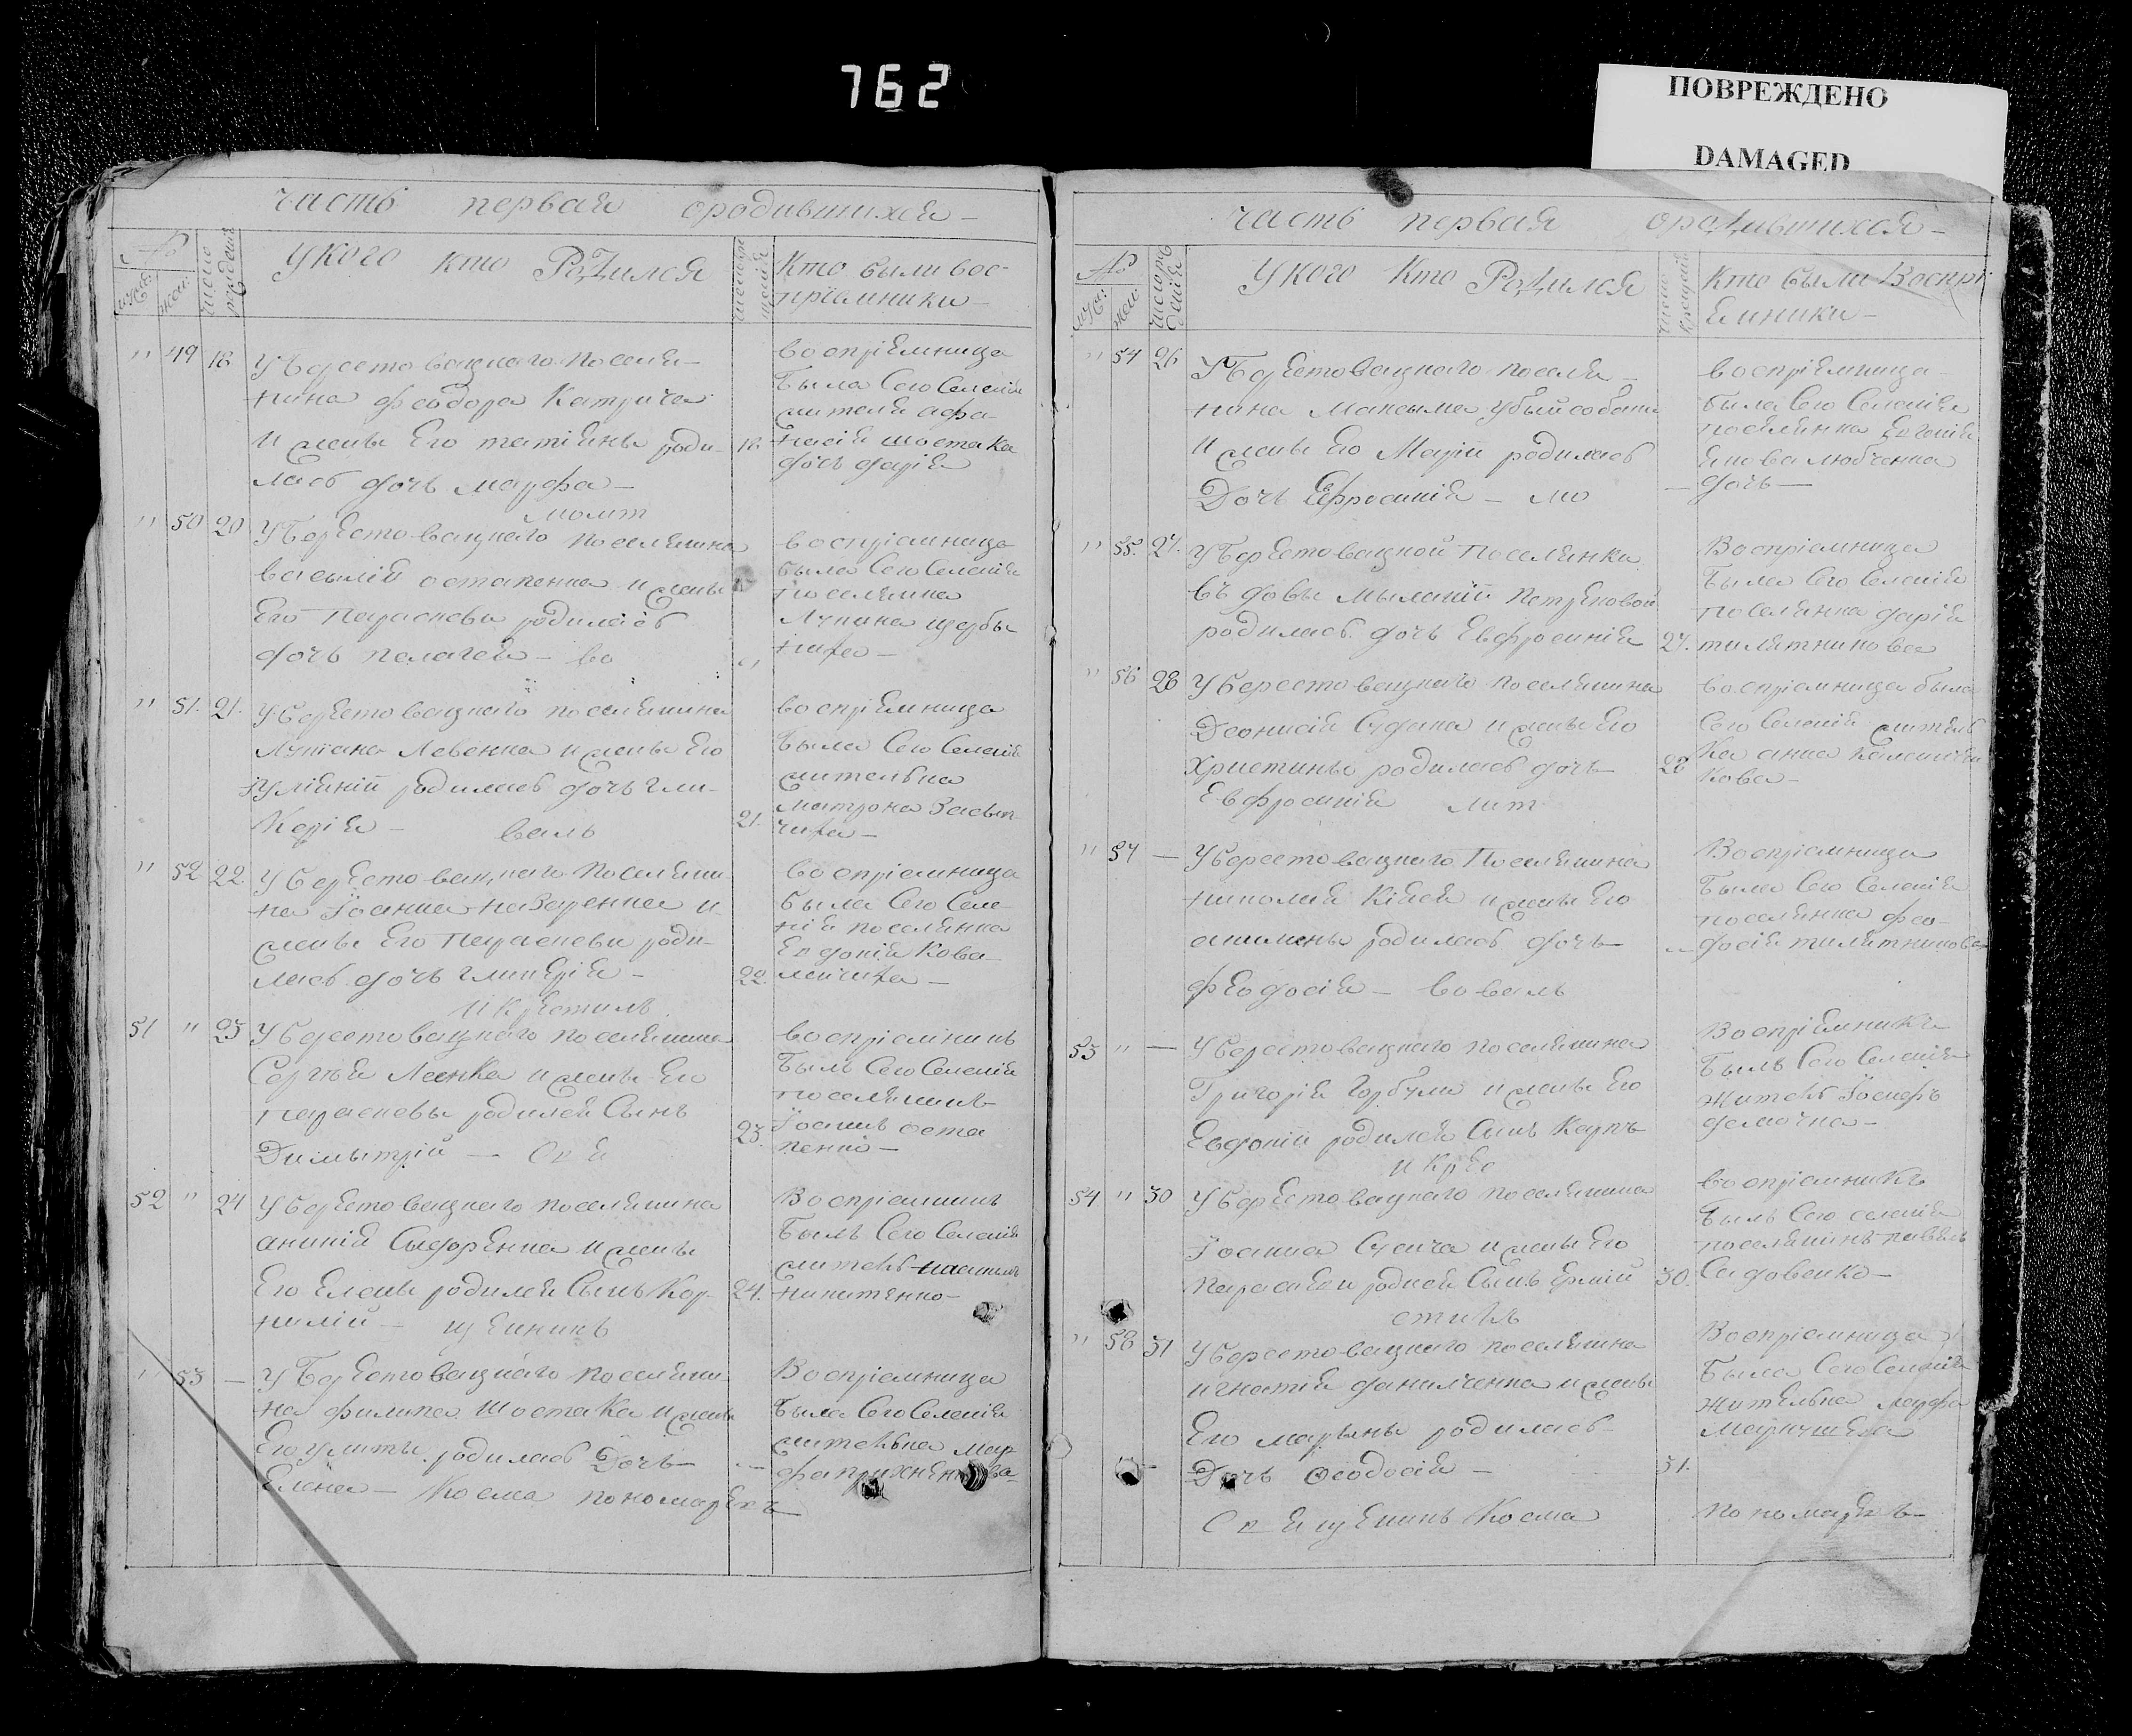 762
ПОВРЕЖДЕНО
DAMAGED
часть первая ородившихся —
№
муж: жен:
число рождения
Укого кто Родился
Кто были вос-
пріемники —
" 49 18 У Берестовацкаго поселя-
нина Феодора Катрича
и жены Его татіяны роди-
лась дочь марфа —
молит
18
воспріемница
была Сего Селенія
жителя афа-
насія шостака
дочь дарія
" 50 20 У Берестовацкаго поселянина
василія остапенка и жены
Его параскевы родилась
дочь пелагея — во
воспріемница
была Сего Селенія
поселянка
" 51. 21. У берестовацкаго поселянина
Лукіана Левенка и жены Его
іуліяніи родилась дочь гли-
керія — валь
21.
воспріемница
была Сего Селенія
жителька
матрона
" 52 22. У берестовацкаго поселяни-
на Іоанна назаренка и
жены Его параскевы роди-
лась дочь гликерія —
и крестилъ
22.
воспріемница
была Сего Селе-
нія поселянка
Евдокія Кова-
51 " 23 У берестовацкаго поселянина
Сергѣя Леенка и жены Его
параскевы родился Сынъ
Димытрій — Свя
23.
воспріемникъ
былъ Сего Селенія
поселянинъ
Іоаннъ оста
пенко —
52 " 24 У берестовацкаго поселянина
ананія Сыдоренка и жены
Его Елены родился Сынъ Кор-
нилій — щенникъ
24.
Воспріемникъ
былъ Сего Селенія
житель
никитенко —
" 53 — У Берестовацкаго поселяни-
на филипа шостака и жены
Его улиты родилась Дочь —
Елена — Косма пономаревъ
Воспріемница
была Сего Селенія
жителька мар-
фа
часть первая ородившихся —
№
муж: жен:
число рожденія
Укого Кто Родился
число крещенія
Кто были Воспрі
Емники —
" 54 26 У Берестовацкаго поселя-
нина Максыма Убыйсобаки
и жены Его Маріи родилась
Дочь Евфросинія — мо
воспріемница
была Сего Селенія
поселянка Евгенія
дочь —
" 55. 27. У Берестовацкой поселянки
вдовы Мыланіи Петреновой
родилась дочь Евфросинія
27.
Воспріемница
была Сего Селенія
поселянка дарія
тилятникова
" 56 28 У берестовацкаго поселянина
Деонисія Судака и жены Его
Христины родилась дочь
Евфросинія лит
28
воспріемница была
Сего Селенія житель
ка анна
кова —
" 57 — У берестовацкаго Поселянина
николая Кіяся и жены Его
акилины родилась дочь
феодосія — во валь
Воспріемница
была Сего Селенія
поселянка фео-
досія тилятникова
53 " — У берестовацкаго поселянина
Григорія Горбула и жены Его
Евдокіи родился Сынъ Карпъ
и крес
Воспріемникъ
былъ Сего Селенія
житель Іосифъ
54 " 30 У берестовацкаго поселянина
Іоанна Сукача и жены Его
Параскеви родися Сынъ Ермій
стилъ
30.
воспріемникъ
былъ Сего селенія
поселянинъ павелъ
Садовенко —
" 58 31 У берестовацкаго поселянина
игнатія даниленка и жены
Его марыны родилась
Дочь Феодосія —
31.
Воспріемница
была Сего Селенія
жителька марфа
Священникъ Косма
пономаревъ —